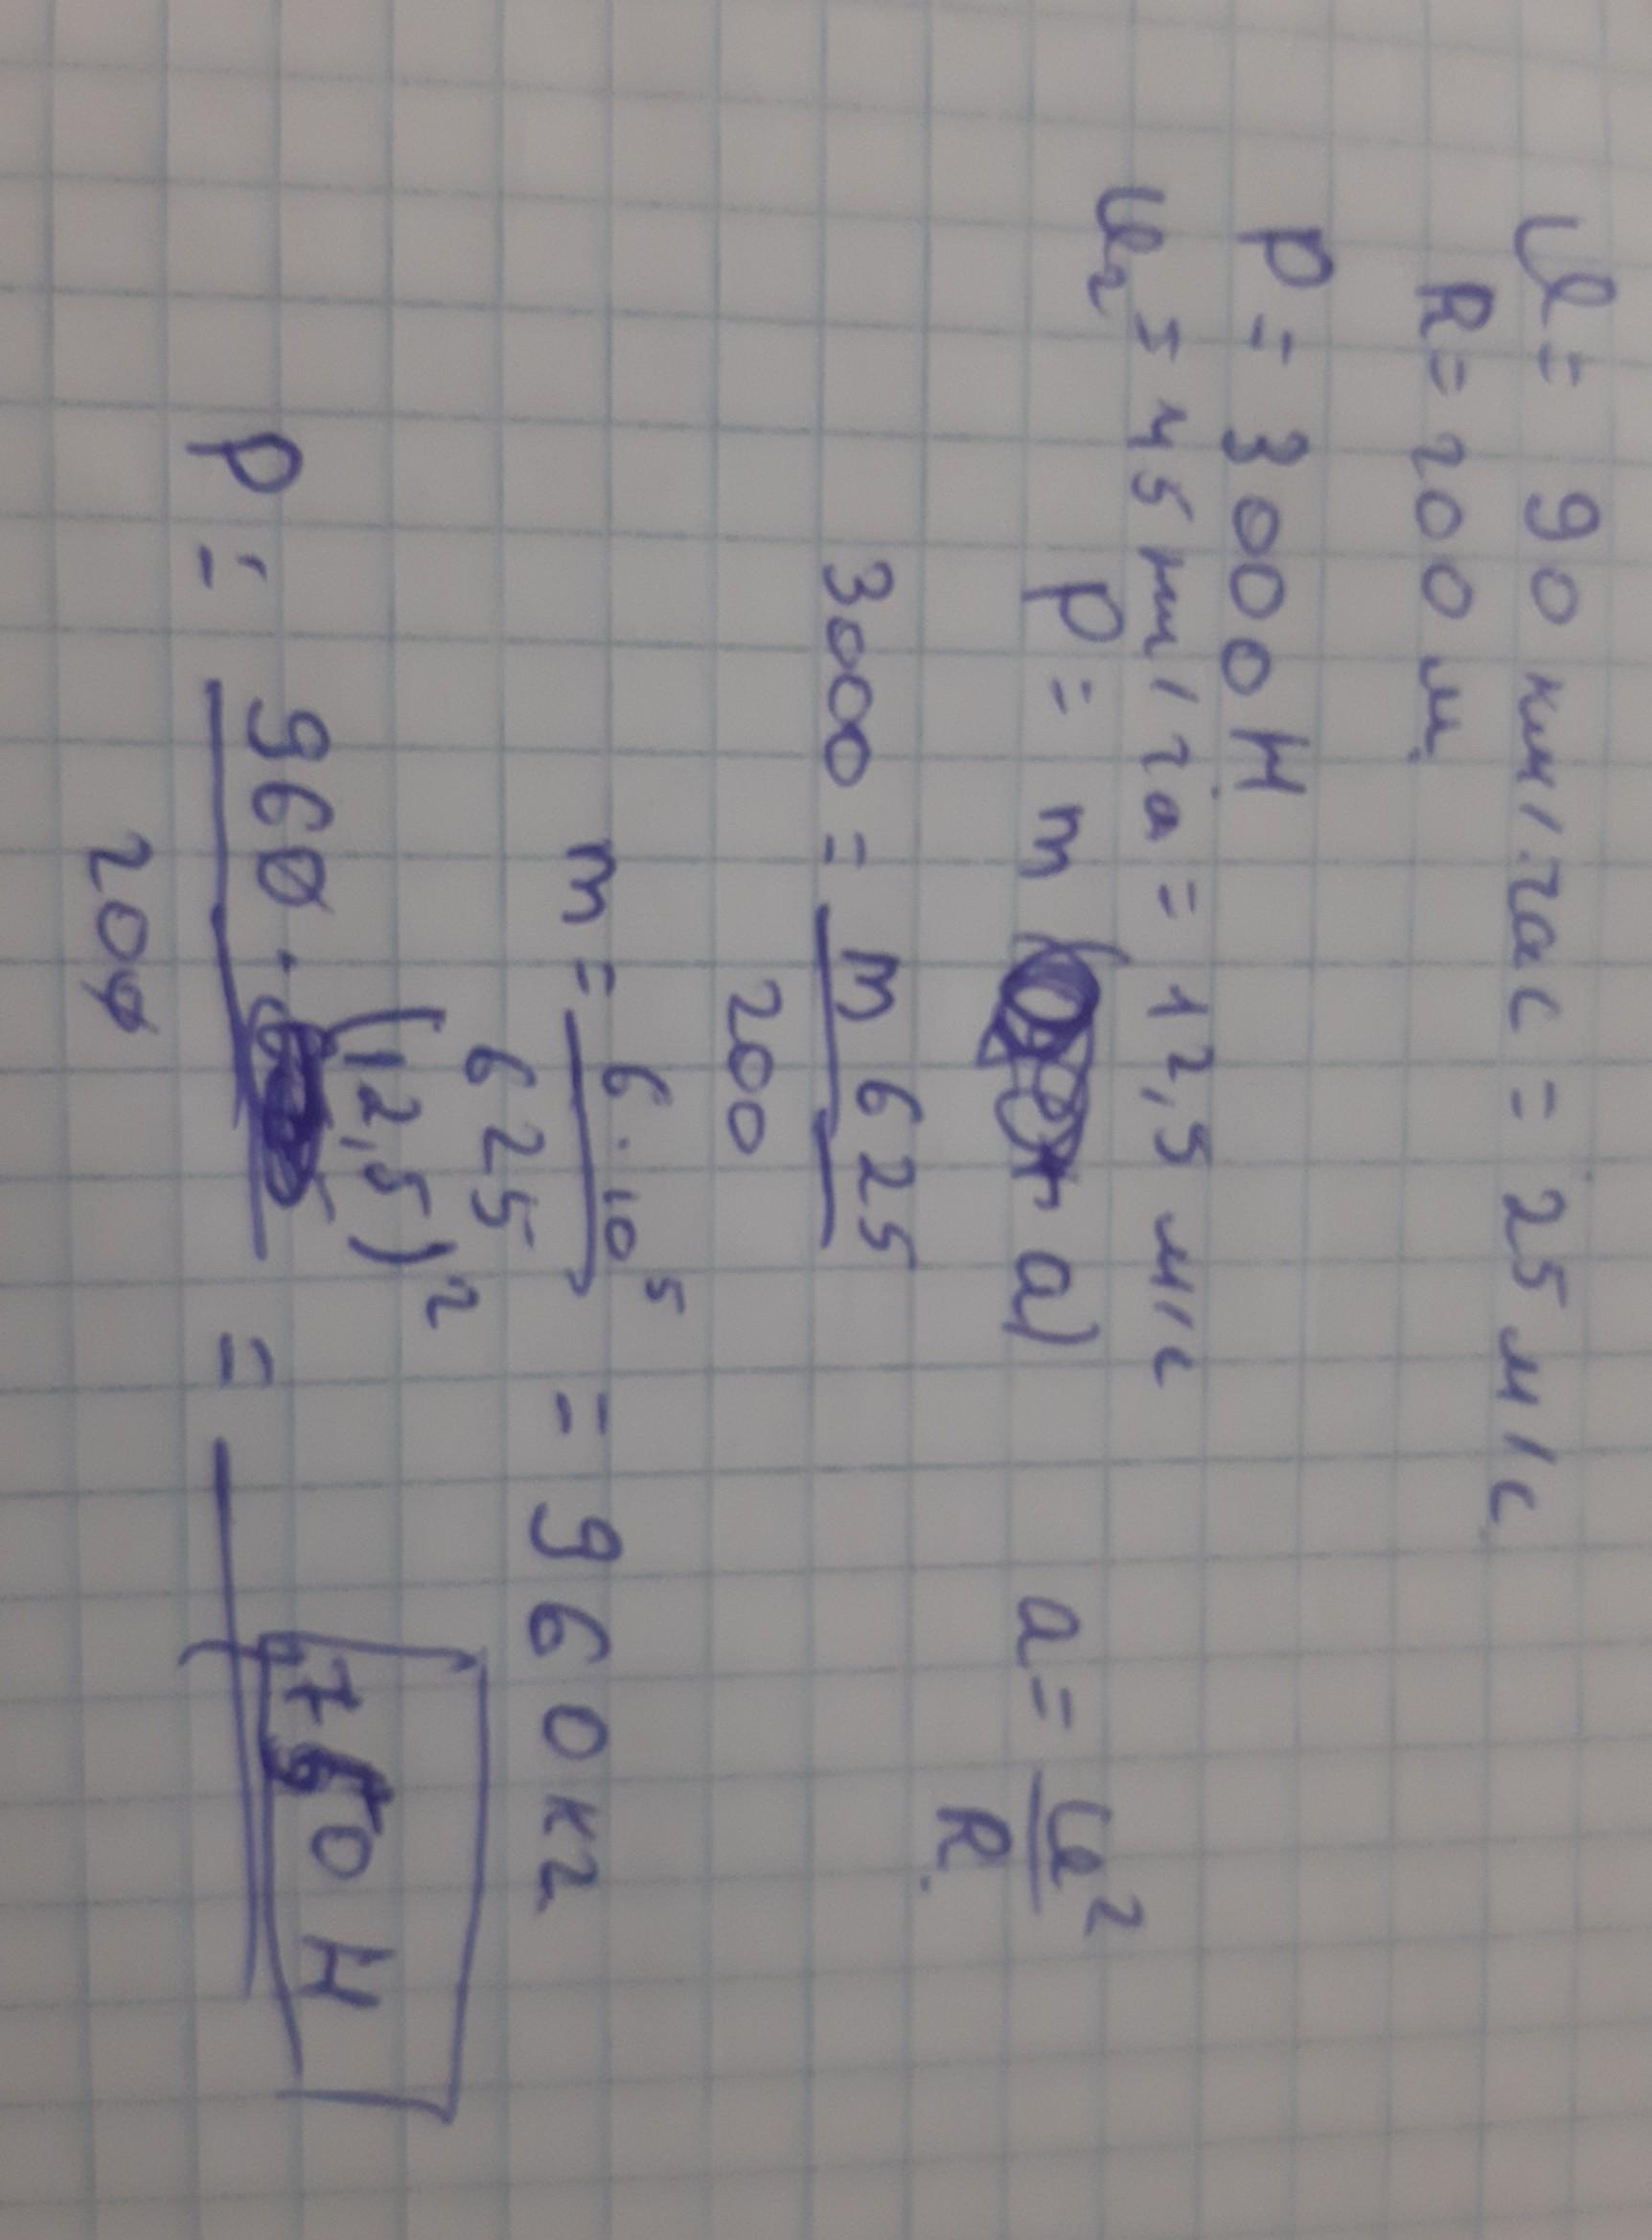 v = 90 км/час = 25 м/с
R = 200 м
P = 3000 Н
v₂ = 45 км/ча = 12,5 м/с
P = m a) a = v²/R
3000 = m 625/200
m = 6·10⁵/625 = 960 кг
P = 960·(12,5)²/200 = 750 Н